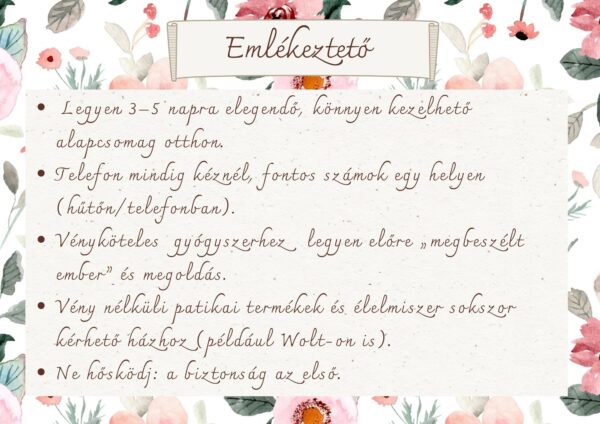 Emlékeztető
• Legyen 3–5 napra elegendő, könnyen kezelhető
alapcsomag otthon.
• Telefon mindig kéznél, fontos számok egy helyen
(hűtőn/telefonban).
• Vényköteles gyógyszerhez legyen előre „megbeszélt
ember” és megoldás.
• Vény nélküli patikai termékek és élelmiszer sokszor
kérhető házhoz (például Wolt-on is).
• Ne hősködj: a biztonság az első.